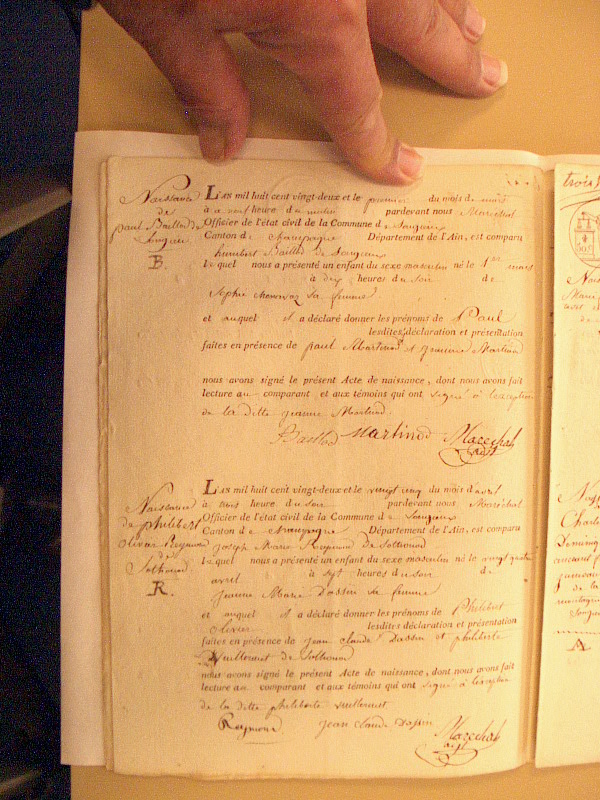 Naissance
de
paul Baillod de
Songieu
B.
LAN mil huit cent vingt-deux et le premier du mois de mars
à neuf heure du matin pardevant nous Marechal
Officier de l'état civil de la Commune de Songieu
Canton de champagne Département de l'Ain, est comparu
humbert Baillod de Songieu
Lequel nous a présenté un enfant du sexe masculin né le 1er mars
à dix heures du soir de
Sophie sa femme
et auquel il a déclaré donner les prénoms de Paul
lesdites déclaration et présentation
faites en présence de paul Martinod et Martinod
nous avons signé le présent Acte de naissance, dont nous avons fait
lecture au comparant et aux témoins qui ont signé à l'exception
de la ditte jeanne Martinod.
Baillod Martinod Marechal
adjt
Naissance
de philibert
olivier Reymond
de
Sothonod
R.
LAN mil huit cent vingt-deux et le vingt cinq du mois d'avril
à trois heure du soir pardevant nous Maréchal
Officier de l'état civil de la Commune de Songieu
Canton de Champagne Département de l'Ain, est comparu
joseph Marie Reymond de Sothonod
Lequel nous a présenté un enfant du sexe masculin né le vingt quatre
avril à sept heures du soir de
jeanne Marie Dassin sa femme
et auquel il a déclaré donner les prénoms de Philibert
olivier lesdites déclaration et présentation
faites en présence de jean claude Dassin et philiberte
Vuillermet de Sothonod
nous avons signé le présent Acte de naissance, dont nous avons fait
lecture au comparant et aux témoins qui ont signé à l'exception
de la ditte philiberte vuillermet
Reymond jean claude Dassin Marechal
adjt
trois
Charle
A